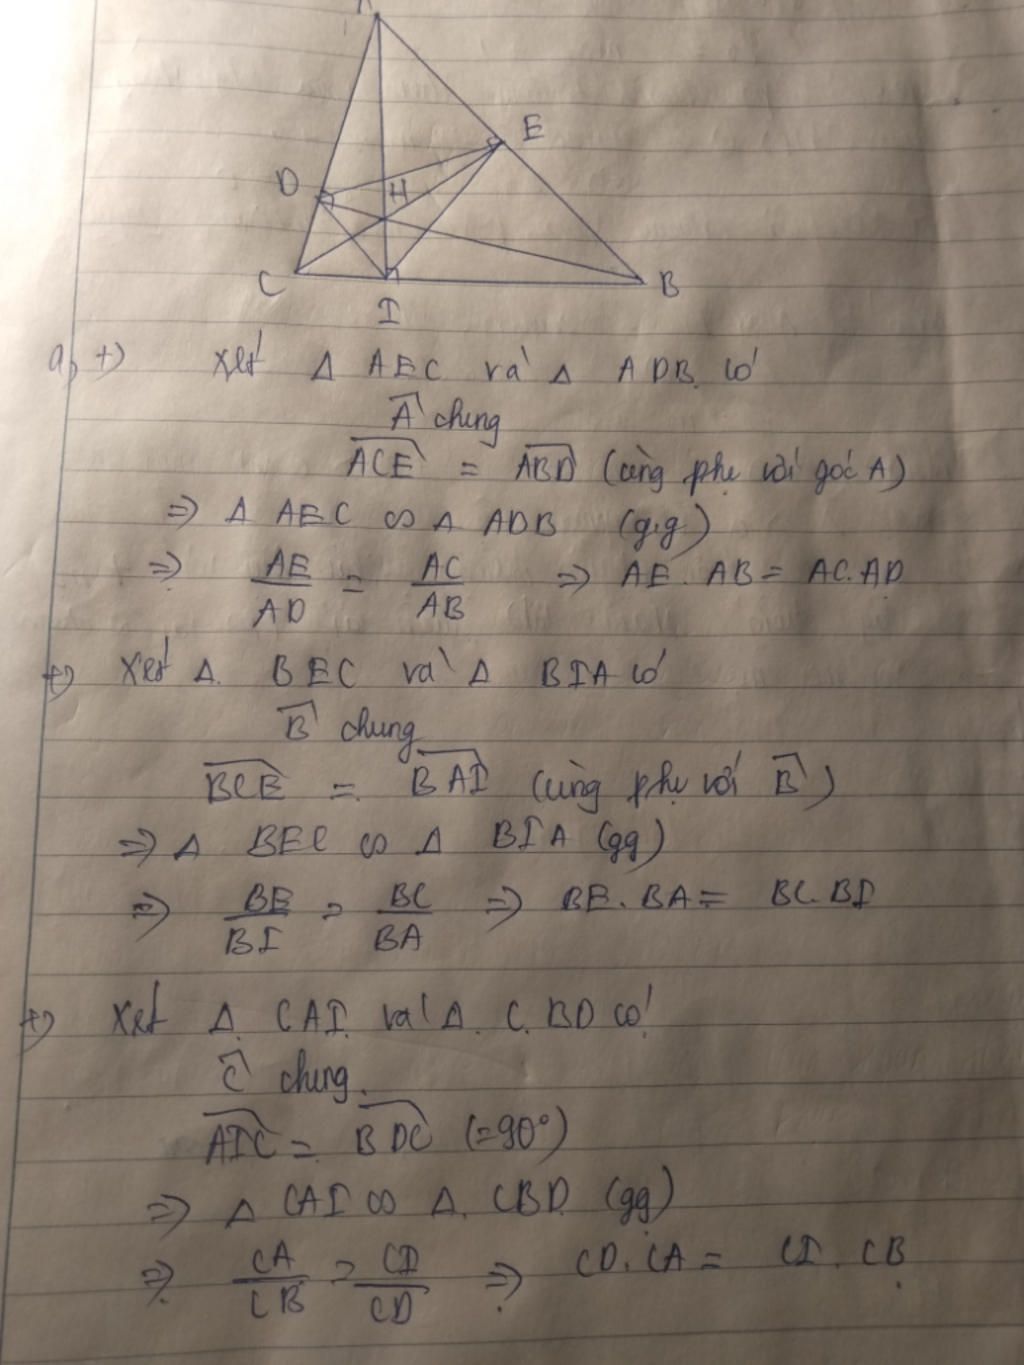 A
E
D
H
C
B
I
a, +) Xét Δ AEC và Δ ADB có
Â chung
ACE = ABD (cùng phụ với góc A)
=> Δ AEC ∽ Δ ADB (g.g)
=> AE/AD = AC/AB => AE. AB = AC.AD
+) Xét Δ. BEC và Δ BIA có
B̂ chung
BCE = BAI (cùng phụ với B̂)
=> Δ BEC ∽ Δ BIA (gg)
=> BE/BI = BC/BA => BE. BA = BC.BI
+) Xét Δ. CAI và Δ. C.BD có
Ĉ chung.
AIC = BDC (=90°)
=> Δ CAI ∽ Δ. CBD (gg)
=> CA/CB = CI/CD => CD. CA = CI. CB